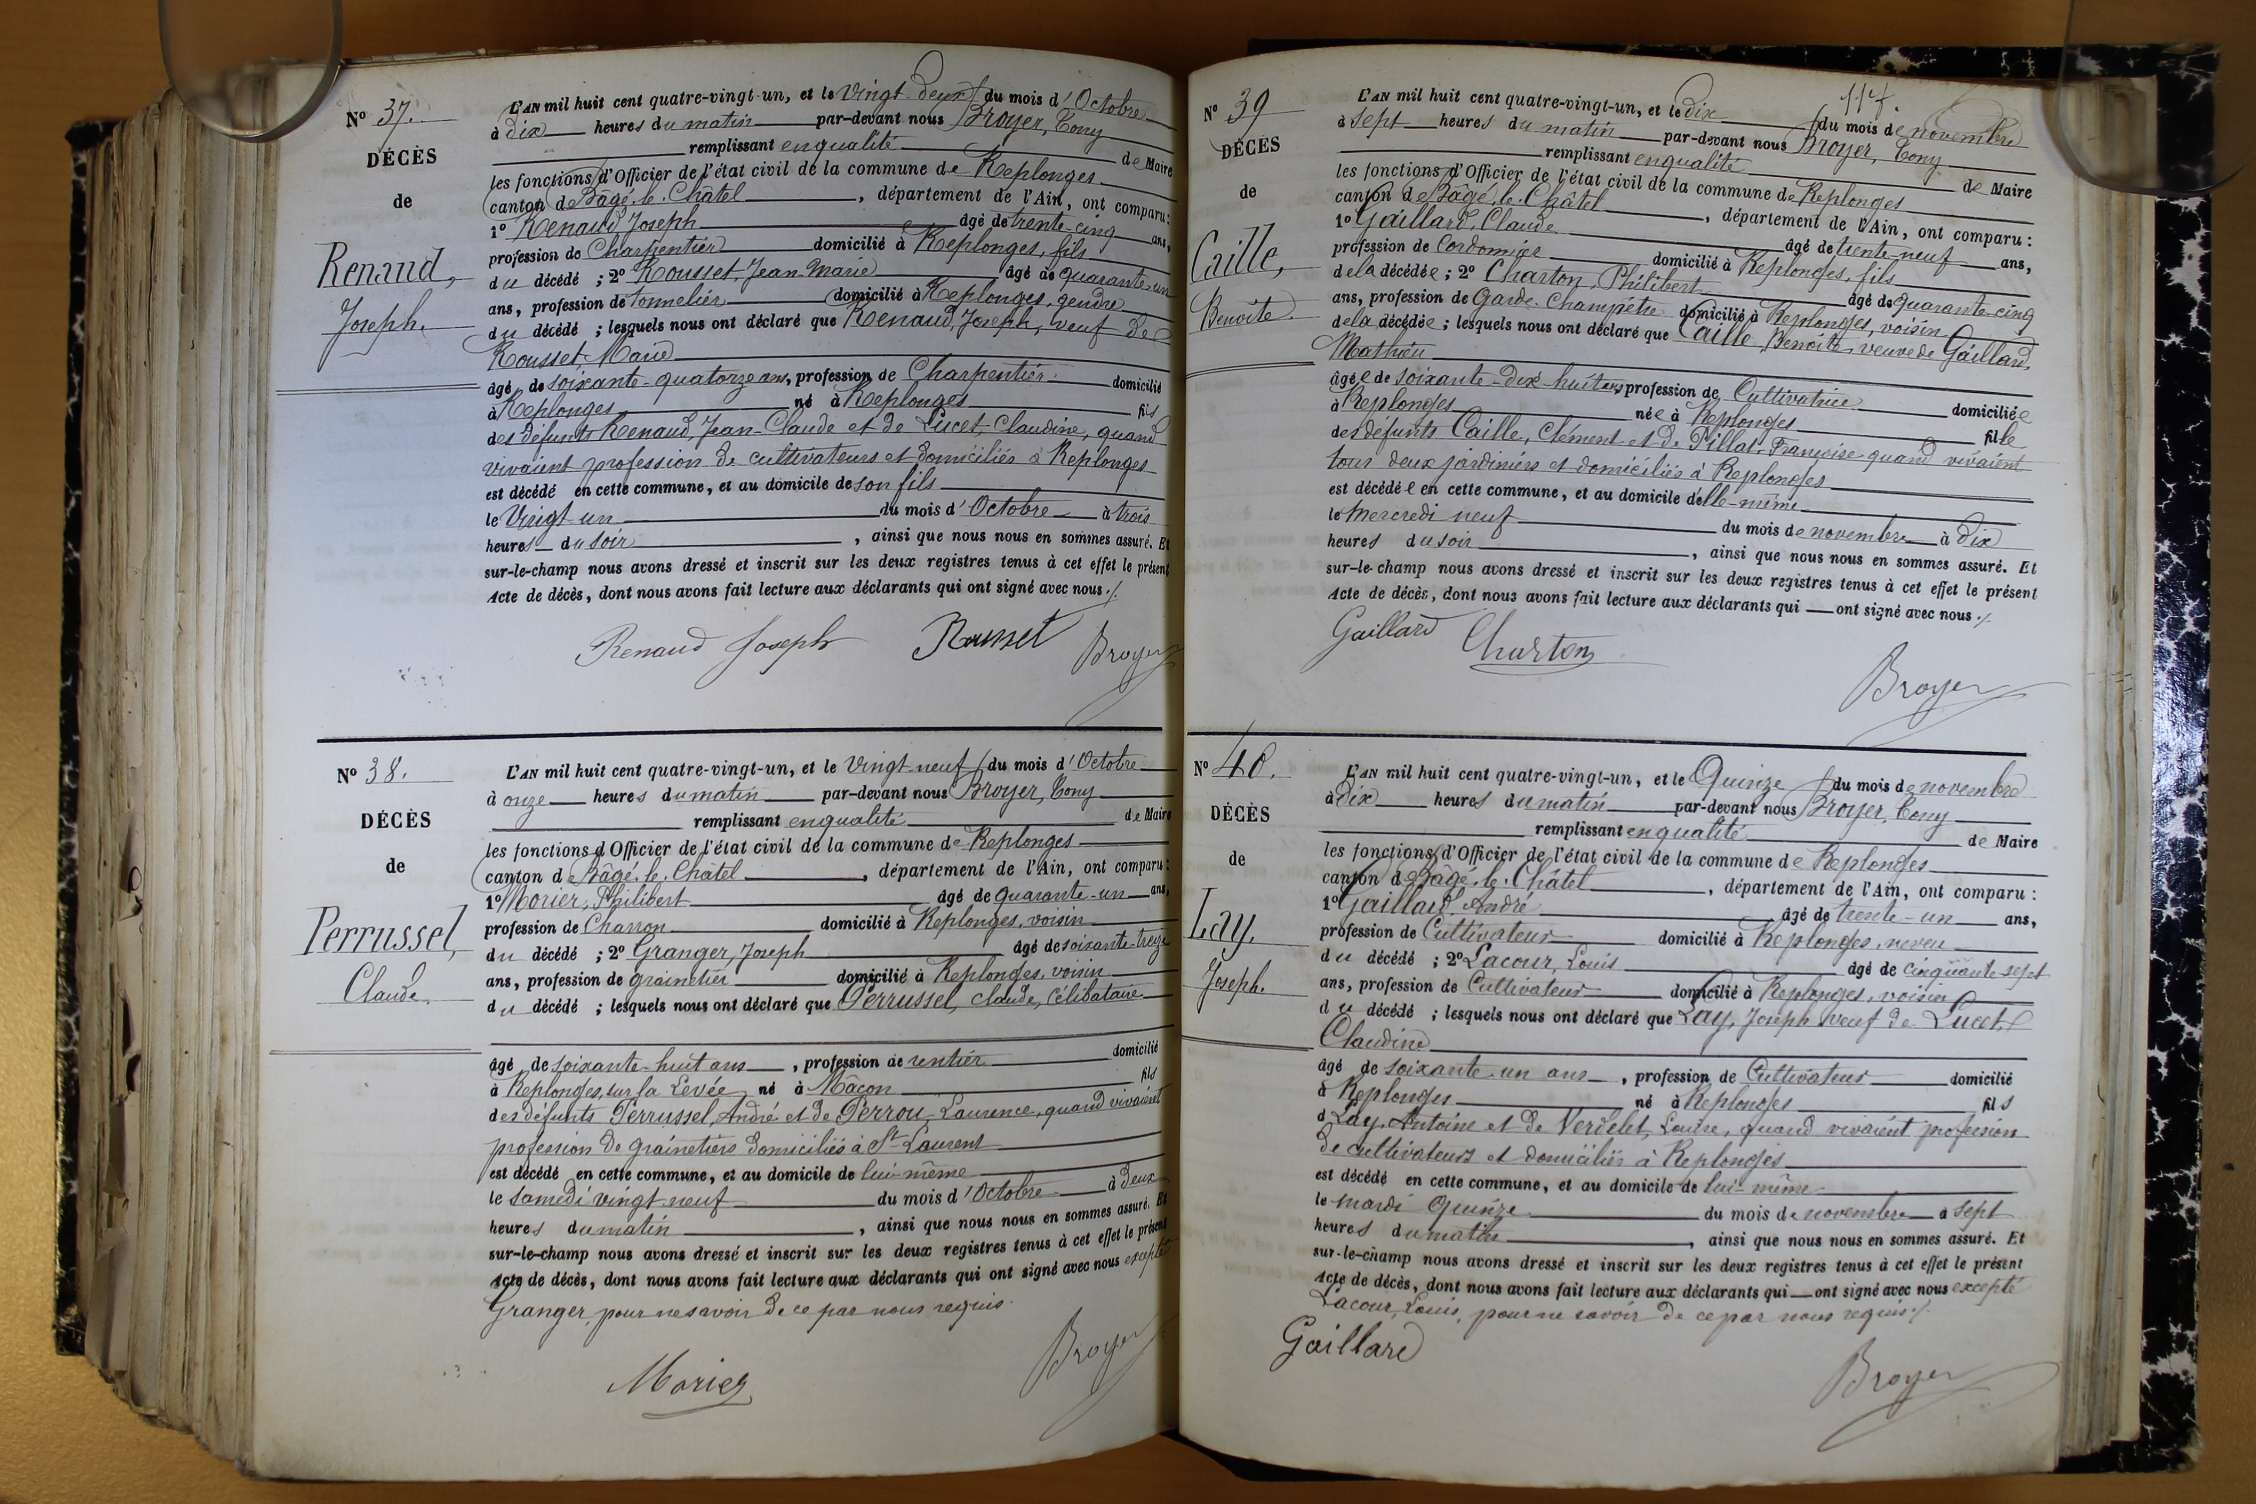 N° 37.
DÉCÈS
de
Renaud,
Joseph.
L'AN mil huit cent quatre-vingt-un, et le vingt-deux du mois d'Octobre
à dix heures du matin par-devant nous Broyer, Tony
remplissant en qualité de Maire
les fonctions d'Officier de l'état civil de la commune de Replonges
canton de Bâgé-le-Châtel, département de l'Ain, ont comparu:
1° Renaud, Joseph âgé de trente-cinq ans,
profession de Charpentier domicilié à Replonges, fils
du décédé ; 2° Rousset, Jean-Marie âgé de quarante-un
ans, profession de tonnelier domicilié à Replonges, gendre
du décédé ; lesquels nous ont déclaré que Renaud, Joseph, veuf de
Rousset Marie
âgé de soixante-quatorze ans, profession de Charpentier domicilié
à Replonges né à Replonges fils
des défunts Renaud, Jean-Claude et de Lucet, Claudine, quand
vivaient profession de cultivateurs et domiciliés à Replonges
est décédé en cette commune, et au domicile de son fils
le Vingt-un du mois d'Octobre à trois
heures du soir, ainsi que nous nous en sommes assuré. Et
sur-le-champ nous avons dressé et inscrit sur les deux registres tenus à cet effet le présent
Acte de décès, dont nous avons fait lecture aux déclarants qui ont signé avec nous ./.
Renaud Joseph Rousset Broyer
N° 38.
DÉCÈS
de
Perrussel,
Claude.
L'AN mil huit cent quatre-vingt-un, et le vingt-neuf du mois d'Octobre
à onze heures du matin par-devant nous Broyer, Tony
remplissant en qualité de Maire
les fonctions d'Officier de l'état civil de la commune de Replonges
canton de Bâgé-le-Châtel, département de l'Ain, ont comparu:
1° Morier, Philibert âgé de quarante-un ans,
profession de Charron domicilié à Replonges, voisin
du décédé ; 2° Granger, Joseph âgé de soixante-treize
ans, profession de grainetier domicilié à Replonges, voisin
du décédé ; lesquels nous ont déclaré que Perrussel, Claude, Célibataire
âgé de soixante-huit ans, profession de rentier domicilié
à Replonges, sur la Levée né à Mâcon fils
des défunts Perrussel, André et de Perrou, Laurence, quand vivaient
profession de grainetiers domiciliés à St Laurent
est décédé en cette commune, et au domicile de lui-même
le samedi vingt-neuf du mois d'Octobre à deux
heures du matin, ainsi que nous nous en sommes assuré. Et
sur-le-champ nous avons dressé et inscrit sur les deux registres tenus à cet effet le présent
Acte de décès, dont nous avons fait lecture aux déclarants qui ont signé avec nous excepté
Granger, pour ne savoir de ce par nous requis.
Morier Broyer
117.
N° 39
DÉCÈS
de
Caille,
Benoîte.
L'AN mil huit cent quatre-vingt-un, et le dix du mois de novembre
à sept heures du matin par-devant nous Broyer, Tony
remplissant en qualité de Maire
les fonctions d'Officier de l'état civil de la commune de Replonges
canton de Bâgé-le-Châtel, département de l'Ain, ont comparu :
1° Gaillard, Claude âgé de trente-neuf ans,
profession de Cordonnier domicilié à Replonges, fils
de la décédée ; 2° Charton, Philibert âgé de quarante-cinq
ans, profession de Garde-Champêtre domicilié à Replonges, voisin
de la décédée ; lesquels nous ont déclaré que Caille, Benoîte veuve de Gaillard,
Mathieu
âgée de soixante-dix-huit ans, profession de Cultivatrice domiciliée
à Replonges née à Replonges fille
des défunts Caille, Clément et de Pillat, Françoise quand vivaient
tous deux jardiniers et domiciliés à Replonges
est décédée en cette commune, et au domicile d'elle-même
le mercredi neuf du mois de novembre à dix
heures du soir, ainsi que nous nous en sommes assuré. Et
sur-le-champ nous avons dressé et inscrit sur les deux registres tenus à cet effet le présent
Acte de décès, dont nous avons fait lecture aux déclarants qui ont signé avec nous ./.
Gaillard Charton
Broyer
N° 40.
DÉCÈS
de
Lay,
Joseph.
L'AN mil huit cent quatre-vingt-un, et le Quinze du mois de novembre
à dix heures du matin par-devant nous Broyer, Tony
remplissant en qualité de Maire
les fonctions d'Officier de l'état civil de la commune de Replonges
canton de Bâgé-le-Châtel, département de l'Ain, ont comparu :
1° Gaillard, André âgé de trente-un ans,
profession de Cultivateur domicilié à Replonges, neveu
du décédé ; 2° Lacour, Louis âgé de cinquante-sept
ans, profession de Cultivateur domicilié à Replonges, voisin
du décédé ; lesquels nous ont déclaré que Lay, Joseph veuf de Lucet,
Claudine
âgé de soixante-un ans, profession de Cultivateur domicilié
à Replonges né à Replonges fils
d Lay, Antoine et de Verdelet, Louise, quand vivaient profession
de cultivateurs et domiciliés à Replonges
est décédé en cette commune, et au domicile de lui-même
le mardi quinze du mois de novembre à sept
heures du matin, ainsi que nous nous en sommes assuré. Et
sur-le-champ nous avons dressé et inscrit sur les deux registres tenus à cet effet le présent
Acte de décès, dont nous avons fait lecture aux déclarants qui ont signé avec nous excepté
Lacour, Louis, pour ne savoir de ce par nous requis ./.
Gaillard
Broyer